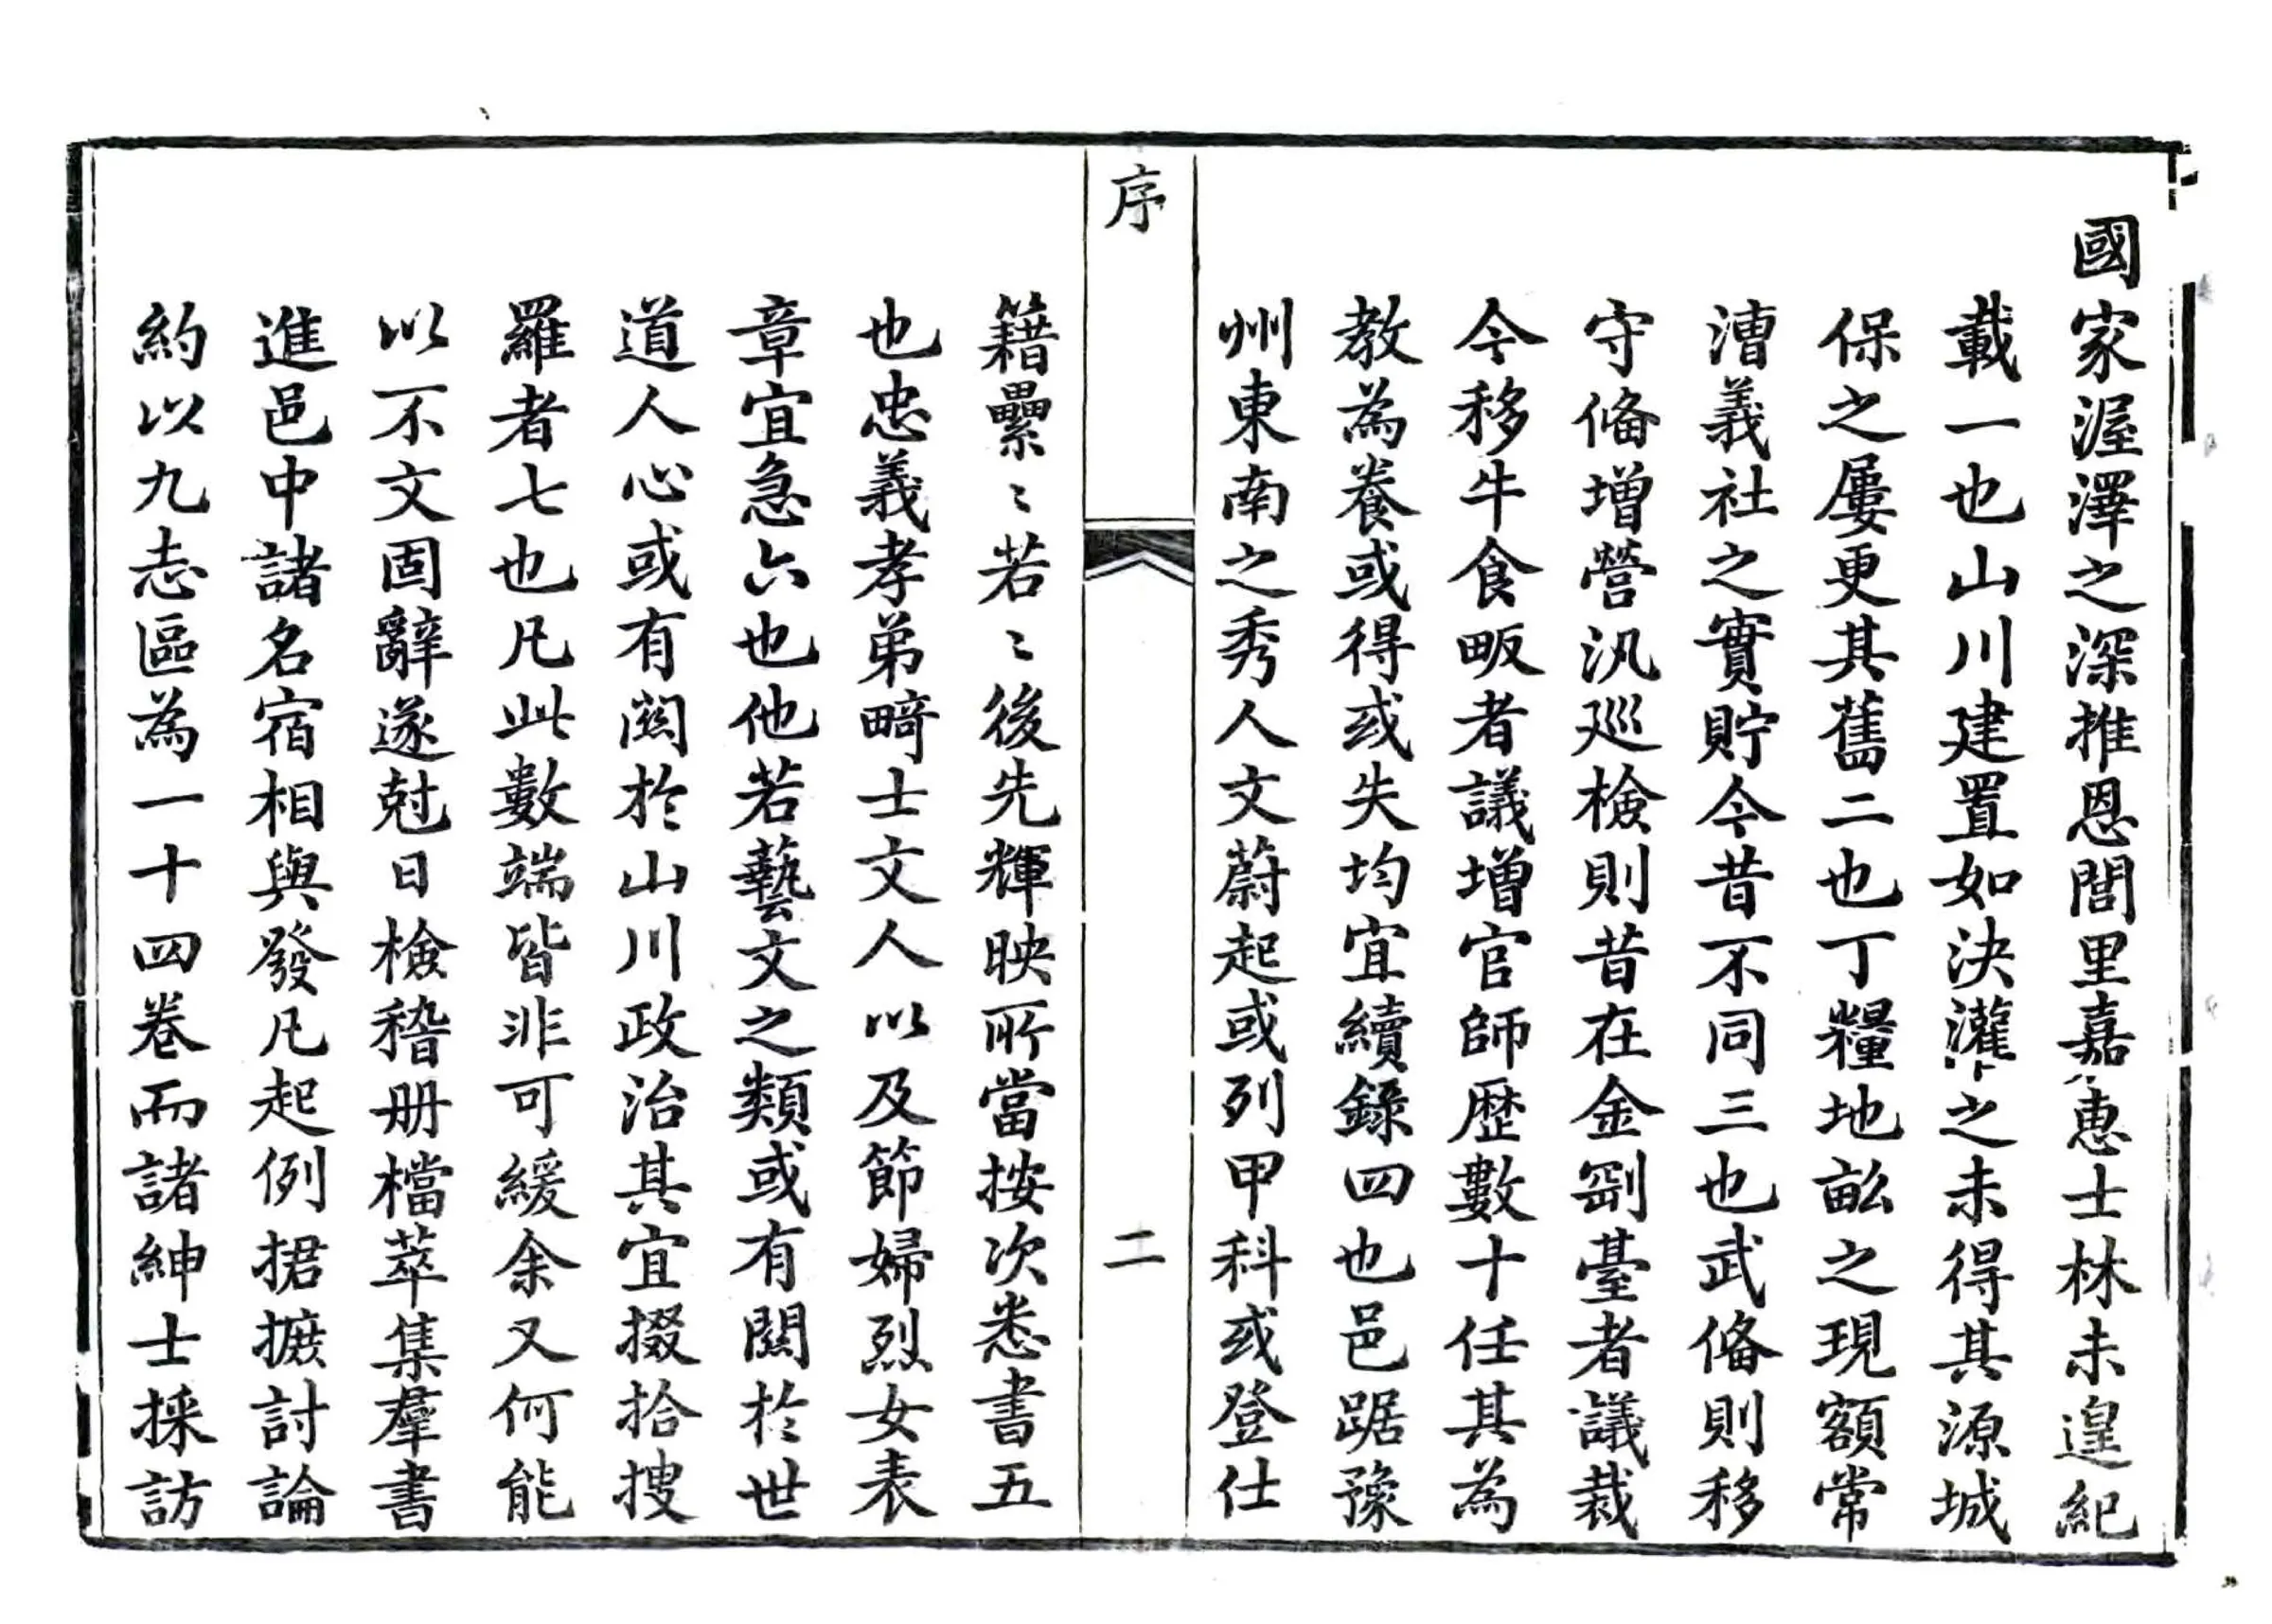 國家渥澤之深推恩閭里嘉惠士林未遑紀
載一也山川建置如決灌之未得其源城
保之屢更其舊二也丁糧地畝之現額常
漕義社之實貯今昔不同三也武俻則移
守俻增營汛廵檢則昔在金劉臺者議裁
今移牛食畈者議增官師歴數十任其為
教為養或得或失均宜續錄四也邑踞豫
州東南之秀人文蔚起或列甲科或登仕
序
二
籍纍〻若〻後先輝映所當按次悉書五
也忠義孝弟畸士文人以及節婦烈女表
章宜急六也他若藝文之類或有關於世
道人心或有關於山川政治其宜掇拾搜
羅者七也凡此數端皆非可緩余又何能
以不文固辭遂尅日檢稽册檔萃集羣書
進邑中諸名宿相與發凡起例捃摭討論
約以九志區為一十四卷而諸紳士採訪